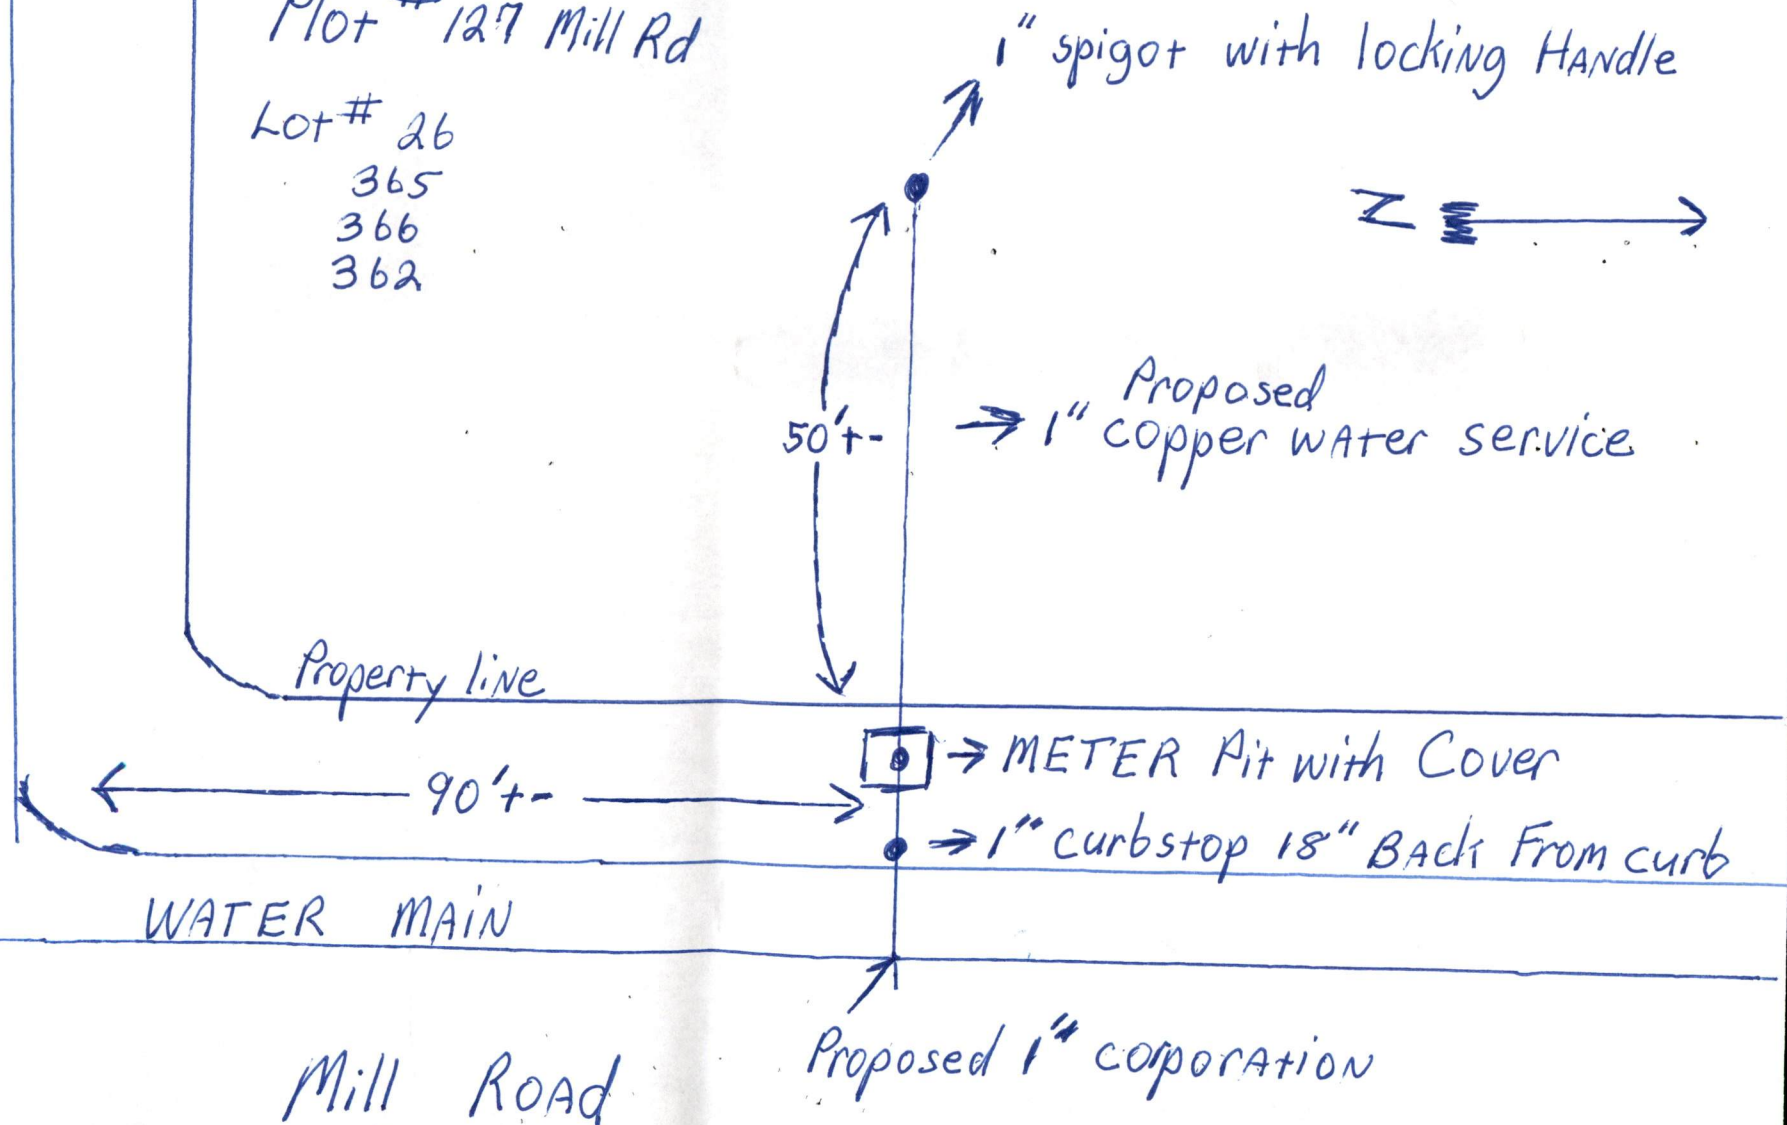 Plot # 127 Mill Rd
Lot # 26
365
366
362
1" spigot with locking HANdle
N
50'+-
Proposed
1" copper wAter service
Property liNe
METER Pit with Cover
90'+-
1" curbstop 18" BAck From curb
WATER MAiN
Proposed 1" corporAtioN
Mill ROAd